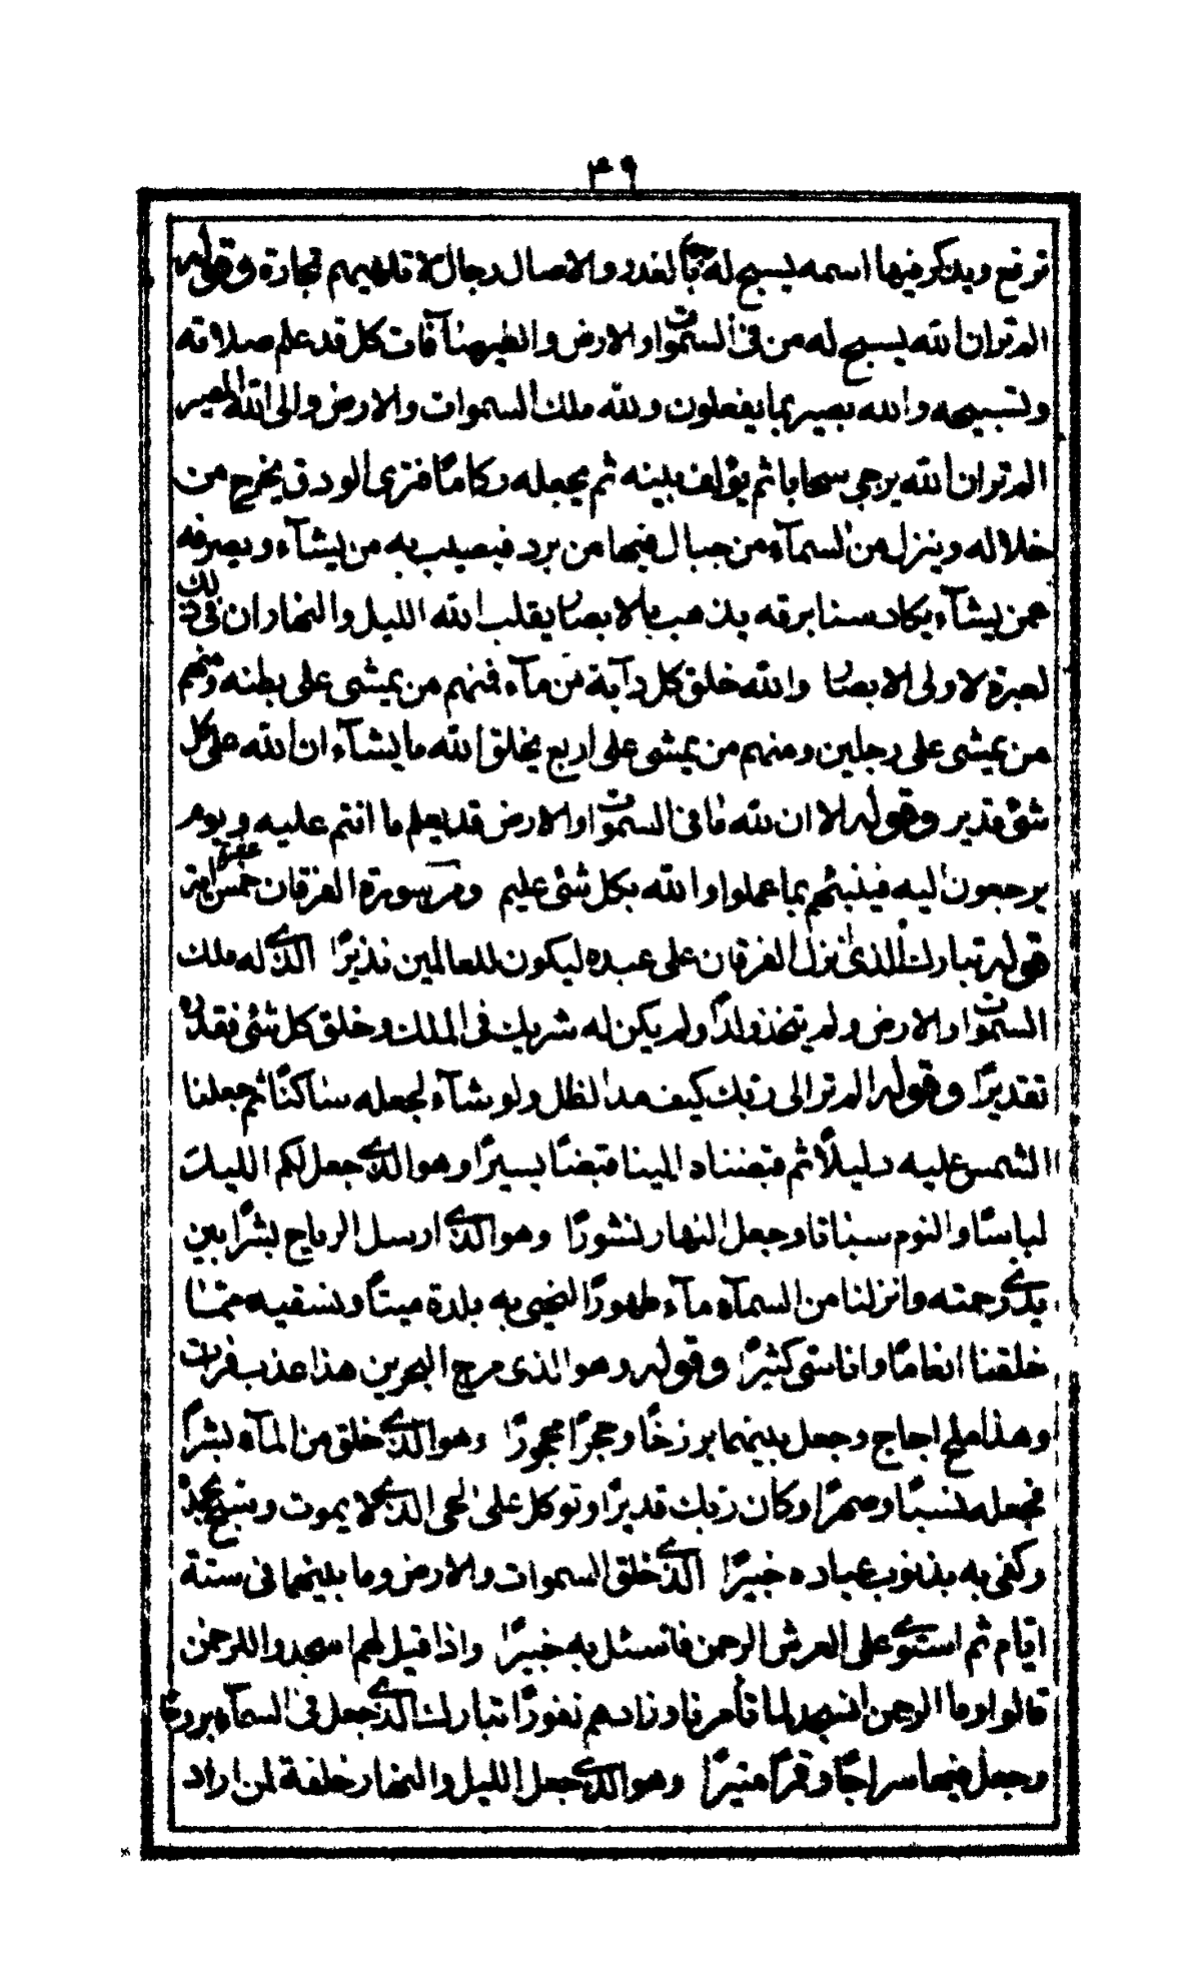 ٣٩
ترفع ويذكر فيها اسمه يسبح له فيها بالغدو والاصال رجال لا تلهيهم تجارة وقوله
الم تر ان الله يسبح له من فى السموات والارض والطير صافات كل قد علم صلاته
وتسبيحه والله بصير بما يفعلون ولله ملك السموات والارض والى الله المصير
الم تر ان الله يزجى سحابا ثم يؤلف بينه ثم يجعله ركامًا فترى الودق يخرج من
خلاله وينزل من السمآء من جبال فيها من برد فيصيب به من يشآء ويصرفه
عمن يشآء يكاد سنا برقه يذهب بالابصار يقلب الله الليل والنهار ان فى ذلك
لعبرة لاولى الابصار والله خلق كل دآبة من مآء فمنهم من يمشى على بطنه ومنهم
من يمشى على رجلين ومنهم من يمشى على اربع يخلق الله ما يشآء ان الله على كل
شئ قدير وقوله الا ان لله ما فى السموات والارض قد يعلم ما انتم عليه ويوم
يرجعون اليه فينبئهم بما عملوا والله بكل شئ عليم ومن سورة الفرقان خمس عشرة اية
قوله تبارك الذى نزل الفرقان على عبده ليكون للعالمين نذيرًا الذى له ملك
السموات والارض ولم يتخذ ولدًا ولم يكن له شريك فى الملك وخلق كل شئ فقدره
تقديرًا وقوله الم تر الى ربك كيف مد الظل ولو شآء لجعله ساكنًا ثم جعلنا
الشمس عليه دليلًا ثم قبضناه الينا قبضًا يسيرًا وهو الذى جعل لكم الليل
لباسًا والنوم سباتا وجعل النهار نشورًا وهو الذى ارسل الرياح بشرًا بين
يدى رحمته وانزلنا من السمآء مآء طهورًا لنحيى به بلدة ميتًا ونسقيه مما
خلقنا انعامًا واناسى كثيرًا وقوله وهو الذى مرج البحرين هذا عذب فرات
وهذا ملح اجاج وجعل بينهما برزخًا وحجرًا محجورًا وهو الذى خلق من المآء بشرًا
فجعله نسبًا وصهرًا وكان ربك قديرًا وتوكل على الحى الذى لا يموت وسبح بحمده
وكفى به بذنوب عباده خبيرًا الذى خلق السموات والارض وما بينهما فى ستة
ايام ثم استوى على العرش الرحمن فاسئل به خبيرًا واذا قيل لهم اسجدوا للرحمن
قالوا وما الرحمن انسجد لما تأمرنا وزادهم نفورًا تبارك الذى جعل فى السمآء بروجًا
وجعل فيها سراجًا وقمرًا منيرًا وهو الذى جعل الليل والنهار خلفة لمن اراد